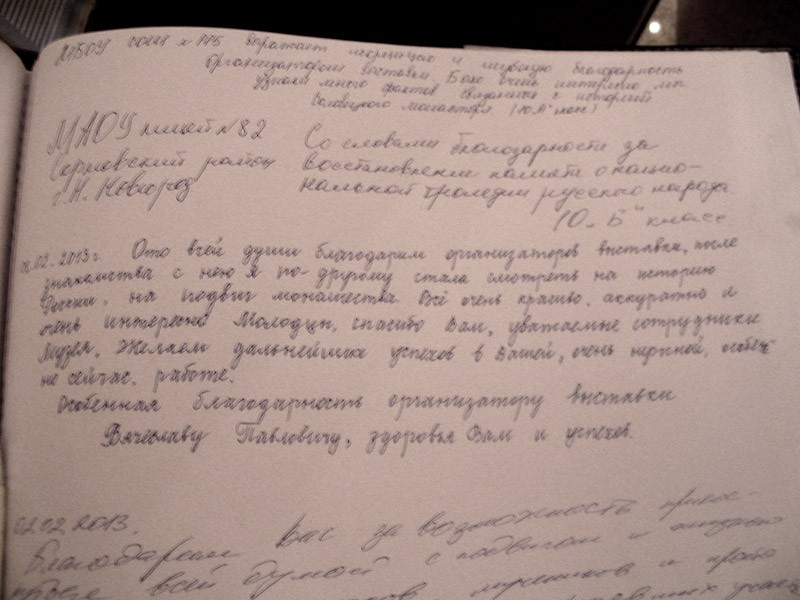 МБОУ СОШ № 175 выражает искреннюю и глубокую благодарность
организаторам выставки. Было очень интересно, мы
узнали много фактов связанных с историей
Соловецкого монастыря (10 А класс)
МАОУ школа № 82
Сормовский район
г. Н. Новгород
Со словами благодарности за
восстановление памяти о нацио-
нальной трагедии русского народа
10 „Б" класс
02.2013 г. Ото всей души благодарим организаторов выставки, после
знакомства с нею я по-другому стала смотреть на историю
России, на подвиг монашества. Всё очень красиво, аккуратно и
очень интересно. Молодцы, спасибо Вам, уважаемые сотрудники
музея. Желаем дальнейших успехов в Вашей, очень нужной, особен-
но сейчас, работе.
Особенная благодарность организатору выставки
Вячеславу Павловичу, здоровья Вам и успехов.
02.12.2013.
Благодарим Вас за возможность прикос-
всей душой с подвигом и
мучеников и просто